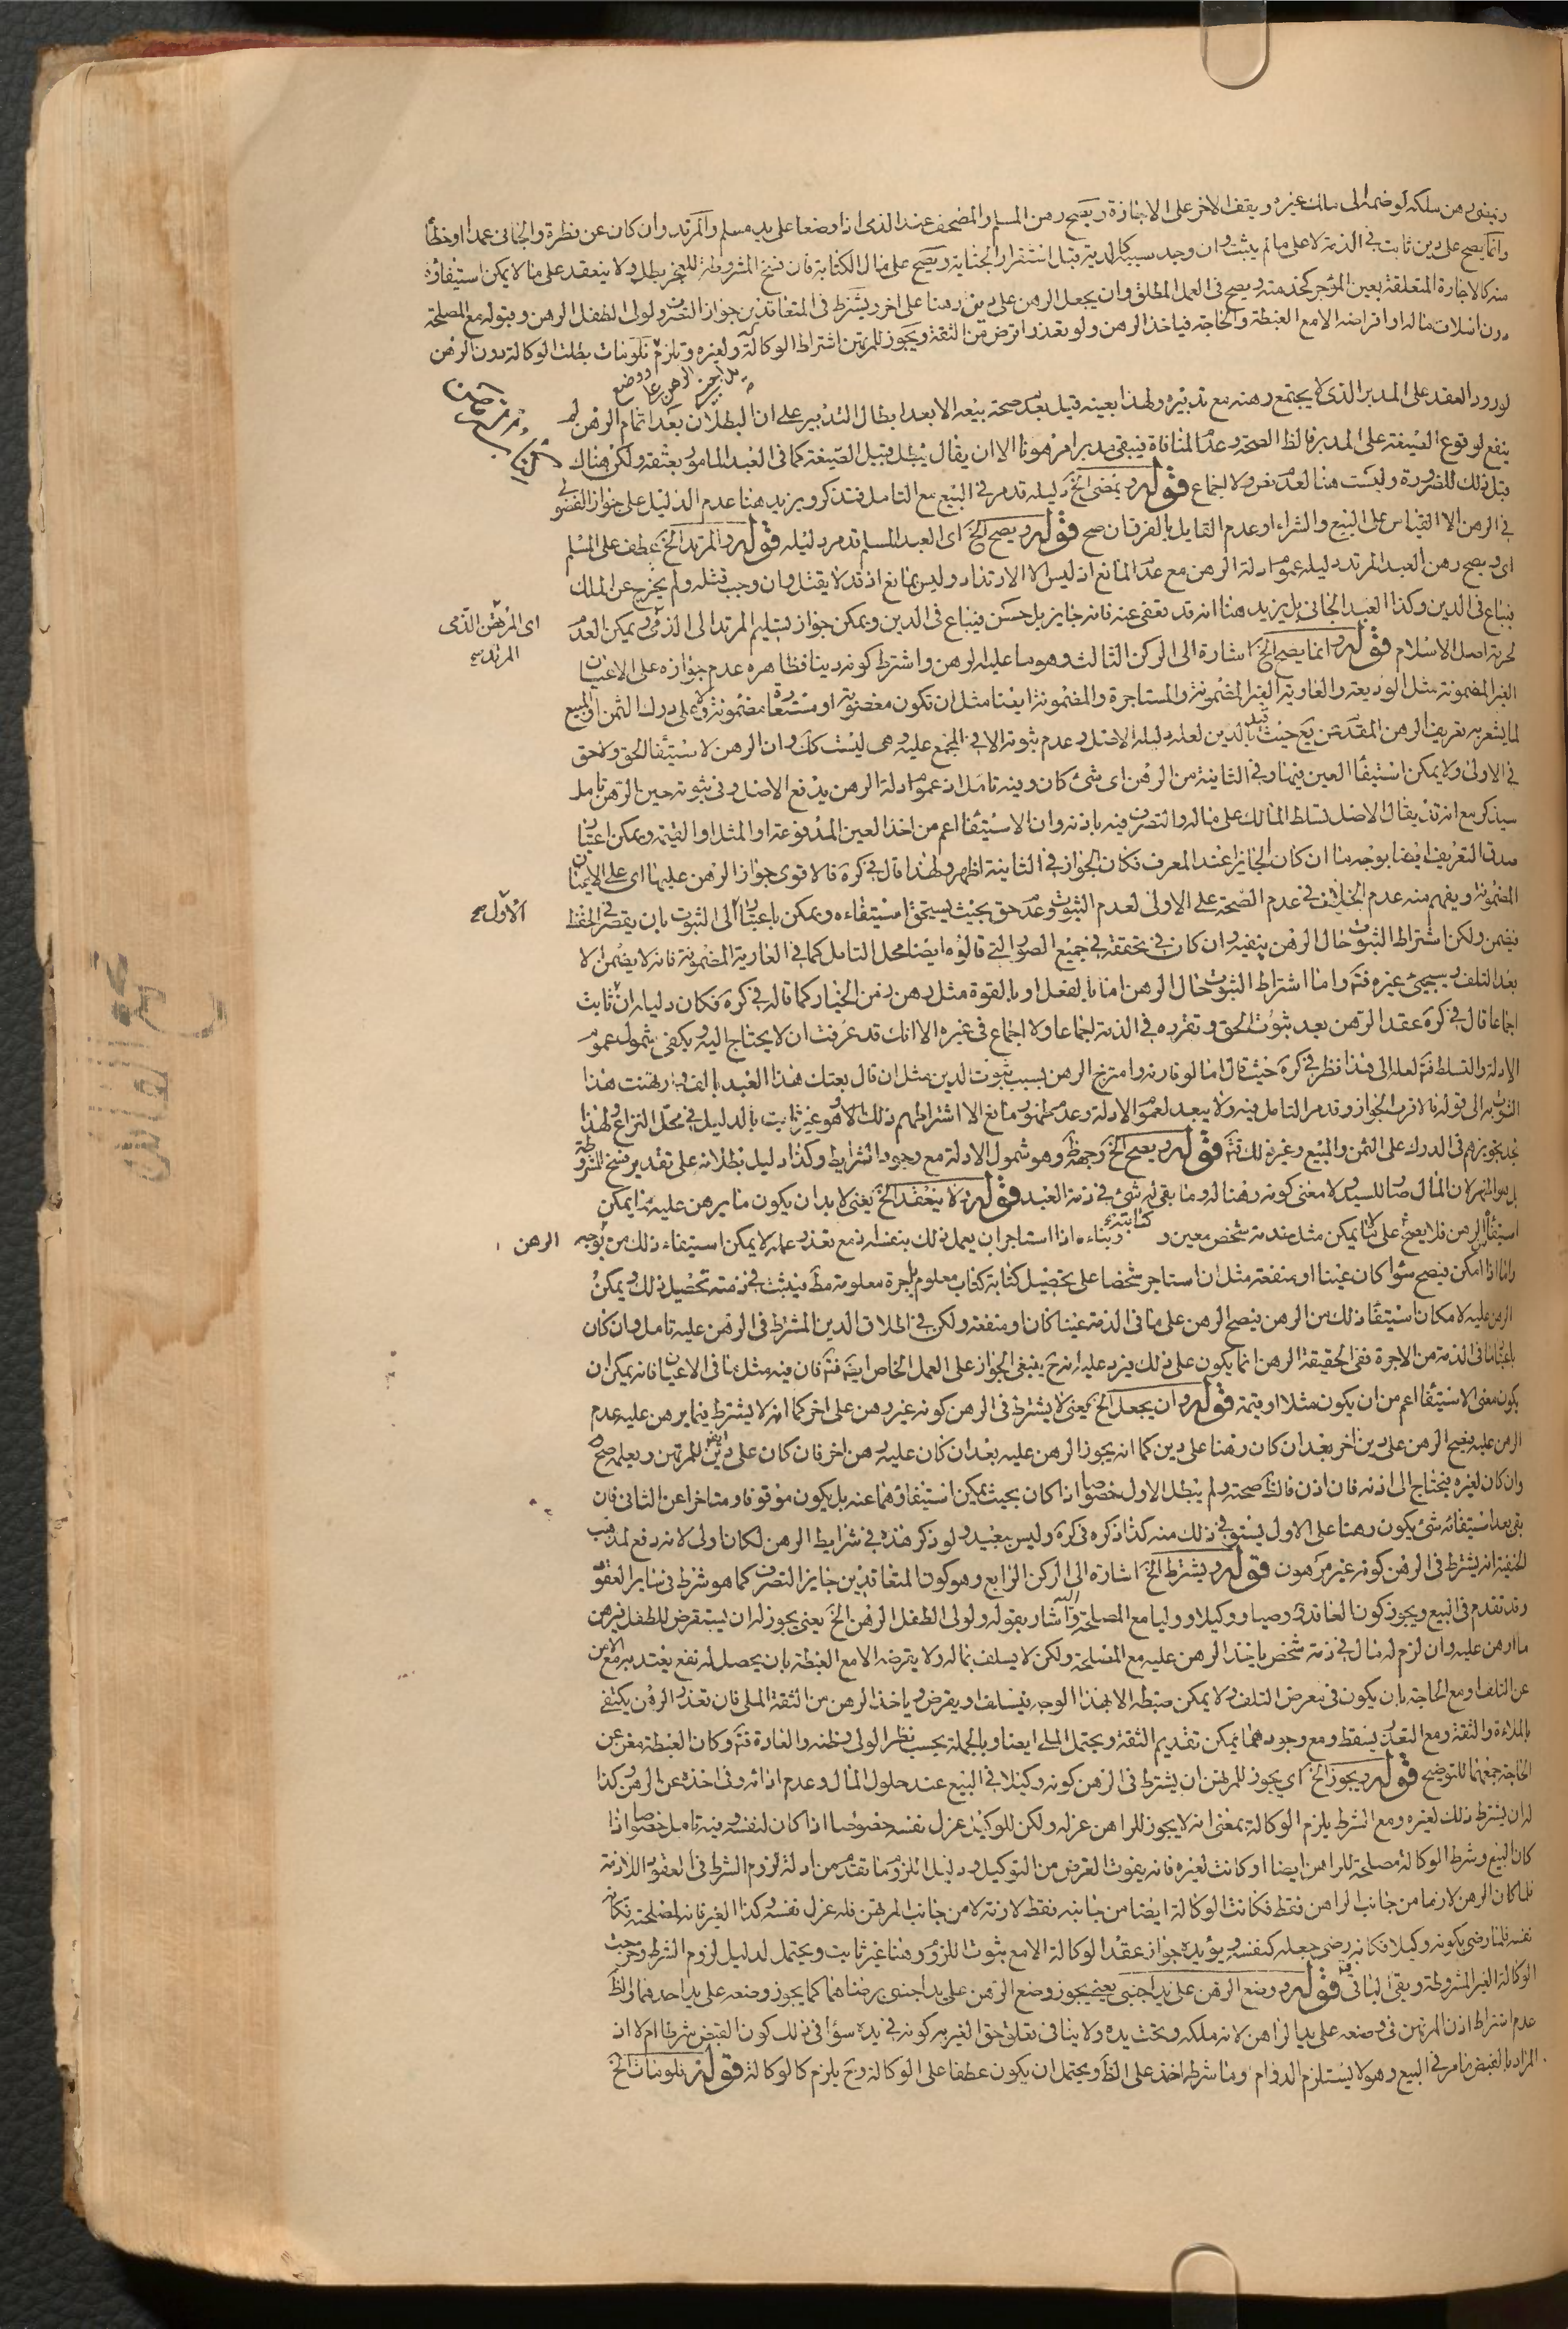 ويمضى رهن سلكه لو ضمه الى ملك غيره ويقف الاخر على الاجازة ويصح رهن المسلم والمصحف عند الذمى اذا وضعا على يد مسلم والمرتد وان كان عن فطرة والجانى عمدا او خطأ
وانما يصح على دين ثابت في الذمة لا على ما لم يثبت وان وجد سببه كالدية قبل استقرار الجناية ويصح على مال الكتابة فان فسخ المشروطة للعجز بطل ولا ينعقد على ما لا يمكن استيفاؤه
منه كالاجارة المتعلقة بعين المؤجر كخدمته ويصح فى العمل المطلق وان يجعل الرهن على دين رهنا على اخر ويشترط فى المتعاقدين جواز التصرف ولولى الطفل الرهن وقبوله مع المصلحة
دون اسلاف ماله او اقراضه الا مع الغبطة والحاجة فياخذ الرهن ولو تعذر اقرض من الثقة ويجوز للمرتهن اشتراط الوكالة له ولغيره وتلزم فلو مات بطلت الوكالة دون الرهن
لورود العقد على المدبر الذى لا يجتمع رهنه مع تدبيره ولهذا بعينه قيل بعد صحة بيعه الا بعد ابطال التدبير على ان البطلان بعد اتمام الرهن لم
ينفع لوقوع الصيغة على المدبر فالظ الصحة وعدم المنافاة فيبقى مدبرا مرهونا الا ان يقال يبطل قبيل الصيغة كما فى العبد المأمور بعتقه ولكن هناك
قبل ذلك للضرورة وليست هنا لعدم نص ولا اجماع قوله ويمضى الخ دليله قد مر في البيع مع التامل فتذكر ويزيد هنا عدم الدليل على جواز الفضولى
في الرهن الا القياس على البيع والشراء او عدم القايل بالفرق ان صح قوله ويصح الخ اى العبد المسلم قد مر دليله قوله والمرتد الخ عطف على المسلم
اى ويصح رهن العبد المرتد دليله عموم ادلة الرهن مع عدم المانع اذ ليس الا الارتداد وليس بمانع اذ قد لا يقتل وان وجب قتله ولم يخرج عن الملك
فيباع فى الدين وكذا العبد الجانى بل يزيد هنا انه قد تعفى عنه فانه جايز بل حسن فيباع فى الدين ويمكن جواز تسليم المرتد الى الذمى ويمكن العدم
اى المرتهن الذمى
المرتد
لحرمة اصل الاسلام قوله وانما يصح الخ اشارة الى الركن الثالث وهو ما عليه الرهن واشترط كونه دينا فظاهره عدم جوازه على الاعيان
الغير المضمونة مثل الوديعة والعارية الغير المضمونة والمستاجرة والمضمونة ايضا مثل ان تكون مغصوبة او مستعارة مضمونة ولا على درك الثمن او المبيع
لما يشعر به تعريف الرهن المتقدمين يع حيث قيل بالدين لعل دليله الاصل وعدم ثبوته الا في المجمع عليه وهى ليست كك وان الرهن لاستيفاء الحق ولا حق
في الاولى ولا يمكن استيفاء العين فيها وفي الثانية من الرهن اى شئ كان وفيه تامل اذ عموم ادلة الرهن يدفع الاصل وفى ثبوته حين الرهن تامل
سيذكر مع انه قد يقال الاصل تسلط المالك على ماله والتصرف فيه باذنه وان الاستيفاء اعم من اخذ العين المدفوعة او المثل او القيمة ويمكن اعتبار
صدق التعريف ايضا بوجه ما ان كان الجايز عند المعرف فكان الجواز في الثانية اظهر ولهذا قال في كره فالاقوى جواز الرهن عليها اى على الاعيان
المضمونة ويفهم منه عدم الخلاف في عدم الصحة على الاولى لعدم الثبوت وعدم حق بحيث يستحق استيفاءه ويمكن باعتبار الى الثبوت بان يقصر في الحفظ
الاول
فيضمن ولكن اشتراط الثبوت حال الرهن ينفيه وان كان في تحققه في جميع الصور التي قالوه ايضا محل التامل كما في العارية المضمونة فانه لا يضمن الا
بعد التلف وسيجئ غيره فتم واما اشتراط الثبوت حال الرهن اما بالفعل او بالقوة مثل رهن زمن الخيار كما قاله في كره فكان دليله ان ثابت
اجماعا قال في كره عقد الرهن بعد ثبوت الحق وتقرره في الذمة اجماعا ولا اجماع فى غيره الا انك قد عرفت ان لا يحتاج اليه ويكفى شمول عموم
الادلة والتسلط فتم لعله الى هذا نظر في كره حيث قال اما لو قارنه وامتزج الرهن بسبب ثبوت الدين مثل ان قال بعتك هذا العبد بالف وارتهنت هذا
الثوب به الى قوله فالاقرب الجواز وقد مر التامل فيه ولا يبعد لعموم الادلة وعدم ظهور مانع الا اشتراطهم ذلك الامر وهو غير ثابت بالدليل في محل النزاع ولهذا
تجد تجويزهم فى الدرك على الثمن والمبيع وغير ذلك فتم قوله ويصح الخ وجهه ظ وهو شمول الادلة مع وجود الشرايط وكذا دليل بطلانه على تقدير فسخ المشروطة
بل هو اظهر لان المال صار للسيد ولا معنى كونه رهنا له وما بقى له شئ في ذمة العبد قوله ولا ينعقد الخ يعنى لا بد ان يكون ما يرهن عليه مما يمكن
استيفاء الرهن فلا يصح على ما لا يمكن مثل خدمة شخص معين و كتابته وبناءه اذا استاجر ان يعمل ذلك بنفسه اذ مع تعذر عمله لا يمكن استيفاء ذلك من وجه الرهن
واما اذا امكن فيصح سواء كان عينا او منفعة مثل ان استاجر شخصا على تحصيل كتابة كتاب معلوم باجرة معلومة مط فيثبت في ذمته تحصيل ذلك ويمكن
الرهن عليه لامكان استيفاء ذلك من الرهن فيصح الرهن على ما فى الذمة عينا كان او منفعة ولكن في اطلاق الدين المشترط فى الرهن عليه تامل وان كان
باعتبار ما فى الذمة من الاجرة ففى الحقيقة الرهن انما يكون على ذلك فيزد عليه انه ح ينبغى الجواز على العمل الخاص ايضه فتم فان فيه مثل ما فى الاعيان فانه يمكن ان
يكون معنى الاستيفاء اعم من ان يكون مثلا او قيمة قوله وان يجعل الخ يعنى لا يشترط فى الرهن كونه غير رهن على اخر كما انه لا يشترط فيما يرهن عليه عدم
الرهن عليه فيصح الرهن على دين اخر بعد ان كان رهنا على دين كما انه يجوز الرهن عليه بعد ان كان عليه رهن اخر فان كان على دين ايضه للمرتهن ويعلمه صح
وان كان لغيره فيحتاج الى اذنه فان اذن فالظ صحته ولم يبطل الاول خصوصا اذا كان بحيث يمكن استيفاؤهما عنه بل يكون موقوفا ومتاخرا عن الثانى فان
بقى بعد استيفائه شئ يكون رهنا على الاول يستوفى ذلك منه كذا ذكره في كره وليس ببعيد ولو ذكر هذه في شرايط الرهن لكان اولى لانه دفع لمذهب
الحنفية انه يشترط فى الرهن كونه غير مرهون قوله ويشترط الخ اشارة الى الركن الرابع وهو كون المتعاقدين جايز التصرف كما هو شرط فى ساير العقود
وقد تقدم فى البيع ويجوز كون العاقد وصيا ووكيلا ووليا مع المصلحة واليه اشار بقوله ولولى الطفل الرهن الخ يعنى يجوز له ان يستقرض للطفل فيرهن
ماله رهن عليه وان لزم له مال في ذمة شخص ياخذ الرهن عليه مع المصلحة ولكن لا يسلف بماله ولا يقرضه الا مع الغبطة بان يحصل له نفع يعتد به مع الامن
عن التلف او مع الحاجة بان يكون فى معرض التلف ولا يمكن ضبطه الا بهذا الوجه فيسلف او يقرض وياخذ الرهن من الثقة الملى فان تعذر الرهن يكتفى
بالملاءة والثقة ومع التعذر يسقط ومع وجودهما يمكن تقديم الثقة ويحتمل الملى ايضا وبالجملة بحسب نظر الولى وظنه والعادة فتم وكان الغبطة مغن عن
الحاجة جمعهما للتوضيح قوله ويجوز الخ اي يجوز للمرتهن ان يشترط فى الرهن كونه وكيلا في البيع عند حلول المال وعدم ادائه وفى اخذه عن الرهن وكذا
له ان يشترط ذلك لغيره ومع الشرط يلزم الوكالة بمعنى انه لا يجوز للراهن عزله ولكن للوكيل عزل نفسه خصوصا اذا كان لنفسه وفيه تامل خصوصا اذا
كان البيع وشرط الوكالة مصلحة للراهن ايضا او كانت لغيره فانه يفوت الغرض من التوكيل ودليل اللزوم ما تقدم من ادلة لزوم الشرط فى العقود اللازمة
فلما كان الرهن لازما من جانب الراهن فقط فكانت الوكالة ايضا من جانبه فقط لازمة لا من جانب المرتهن فله عزل نفسه وكذا الغير فانه لمصلحته فكانه
نفسه فلما رضى بكونه وكيلا فكانه رضى جعله كنفسه ويؤيده جواز عقد الوكالة الا مع ثبوت اللزوم وهنا غير ثابت ويحتمل لدليل لزوم الشرط وخرجت
الوكالة الغير المشروطة وبقى الباقى فتم قوله ووضع الرهن على يد اجنبى يعنى يجوز وضع الرهن على يد اجنبى برضاهما كما يجوز وضعه على يد احدهما والظ
عدم اشتراط اذن المرتهن فى وضعه على يد الراهن لانه ملكه وتحت يده ولا ينافى تعلق حق الغير به كونه في يده سواء فى ذلك كون القبض شرطا ام لا اذ
المراد بالقبض ما مر في البيع وهو لا يستلزم الدوام وما شرط اخذ على الظ ويحتمل ان يكون عطفا على الوكالة وح يلزم كالوكالة قوله فلو مات الخ